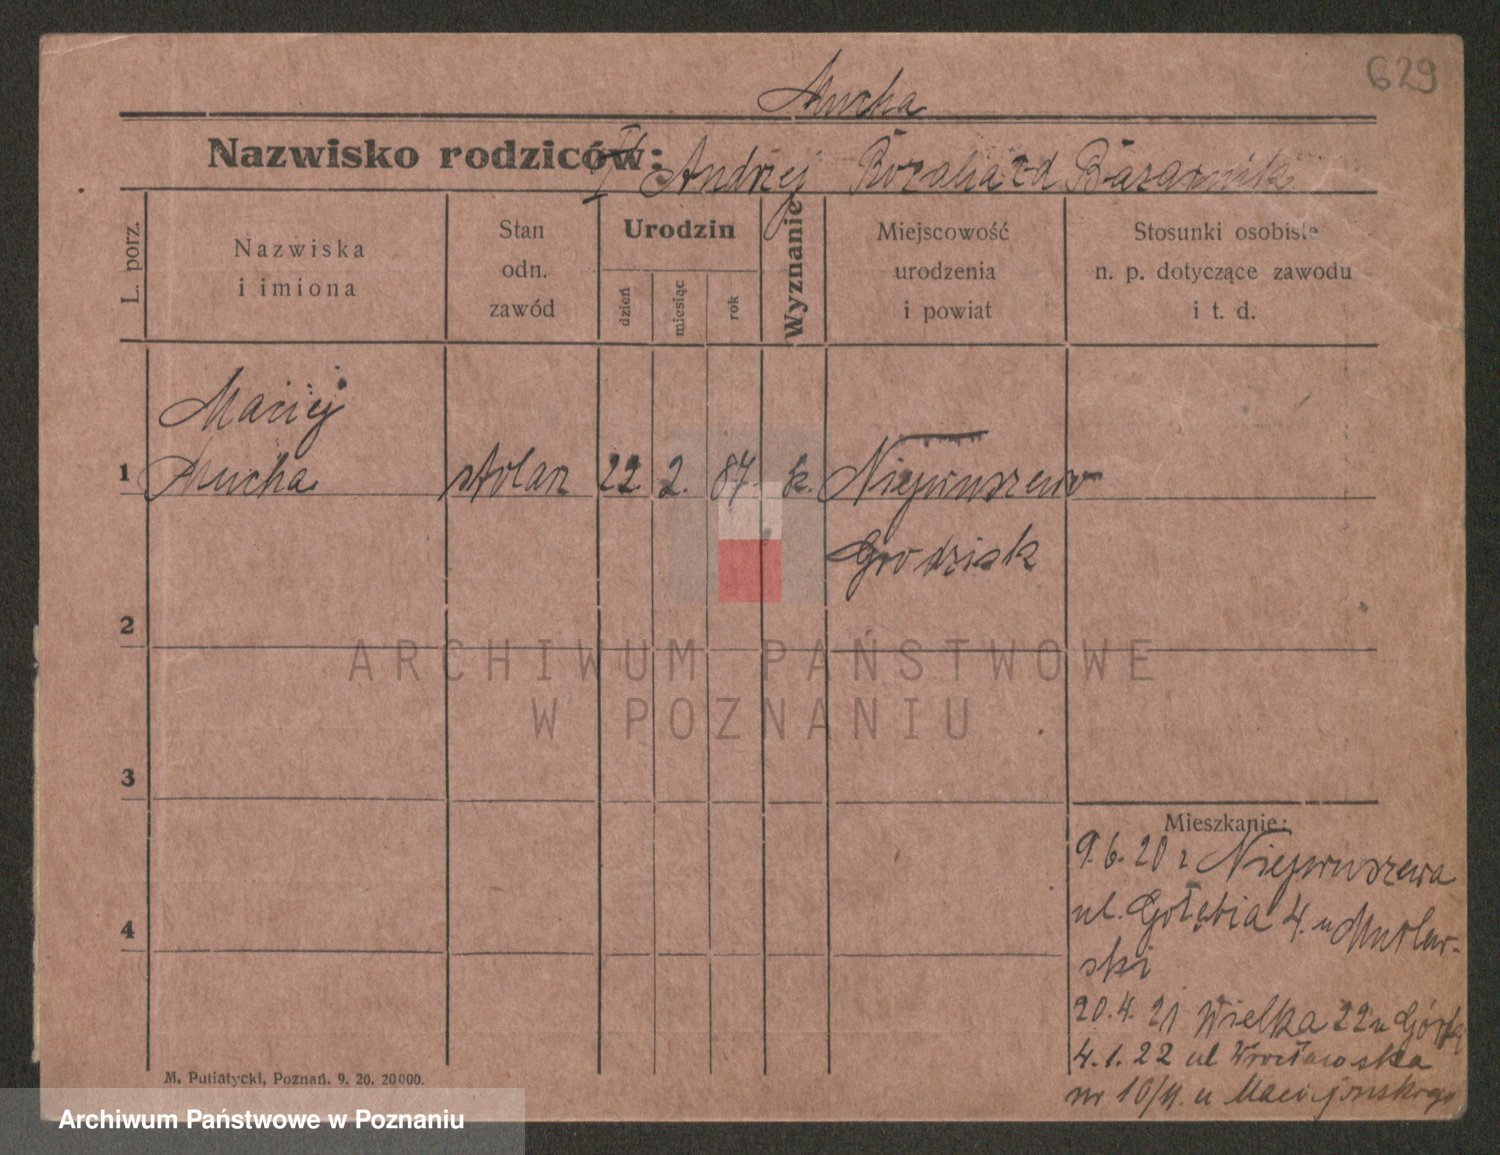 629
Mucha
Nazwisko rodziców: Andrzej Rozalia z d Bazarnik
L. porz.
Nazwiska i imiona
Stan odn. zawód
Urodzin
dzień
miesiąc
rok
Wyznanie
Miejscowość urodzenia i powiat
Stosunki osobiste n. p. dotyczące zawodu i t. d.
Maciej
1 Mucha stolarz 22 2. 87. k. Niepruszewo
Grodzisk
2
ARCHIWUM PAŃSTWOWE
W POZNANIU
3
Mieszkanie:
9.6.20 z Niepruszewa
4
ul. Gołębia 4. u
ski
20.4.21 Wielka 22 u
4.1.22 ul Wrocławska
nr 10/11. u
M. Putiatycki, Poznań. 9. 20. 20000.
Archiwum Państwowe w Poznaniu